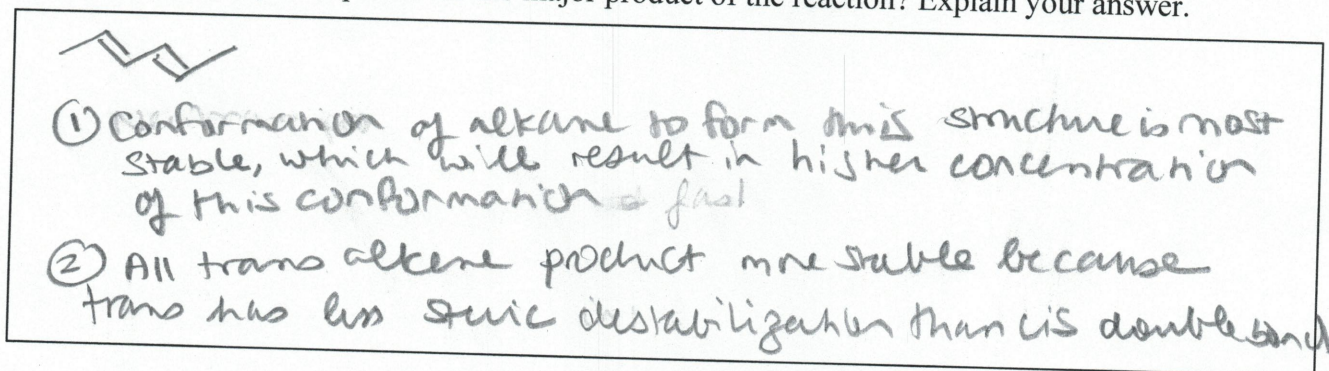 major product of the reaction? Explain your answer.
① Conformation of alkane to form this structure is most
stable, which will result in higher concentration
of this conformation
② All trans alkene product more stable because
trans has less steric destabilization than cis double bond